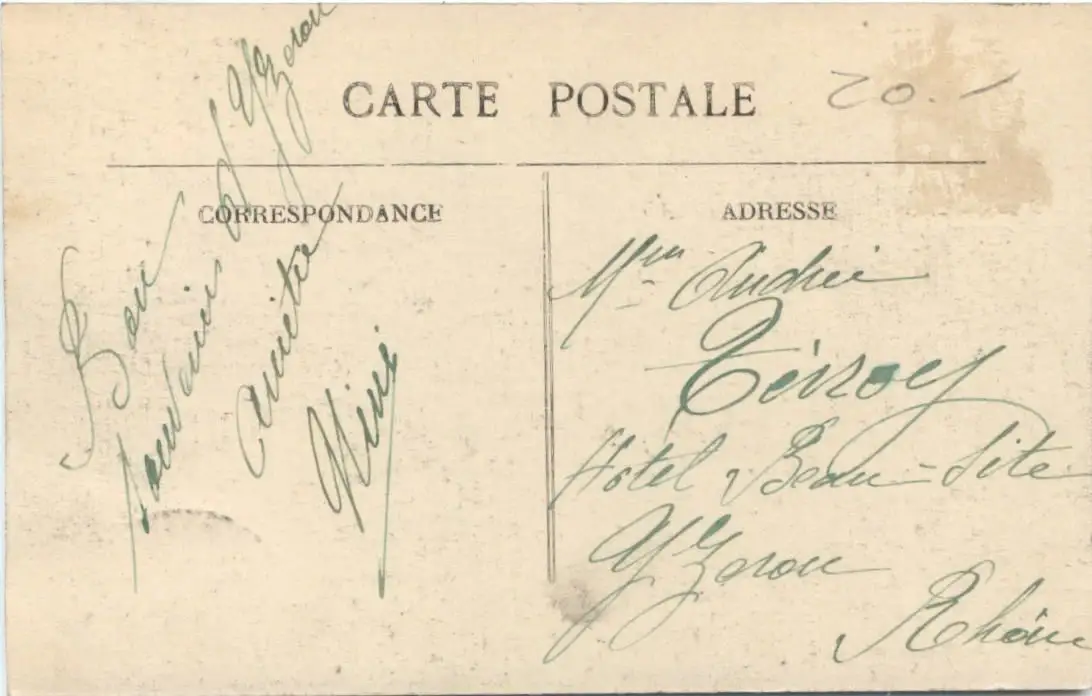 CARTE POSTALE
20.-
CORRESPONDANCE
Bon
souvenir d'Yzeron
amitié
Mimi
ADRESSE
Mme
Hôtel Beau-Site
Yzeron
Rhône